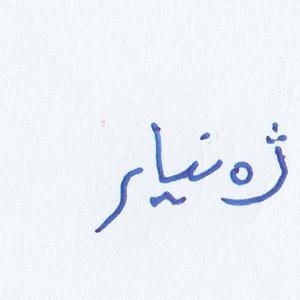 ژەنیار